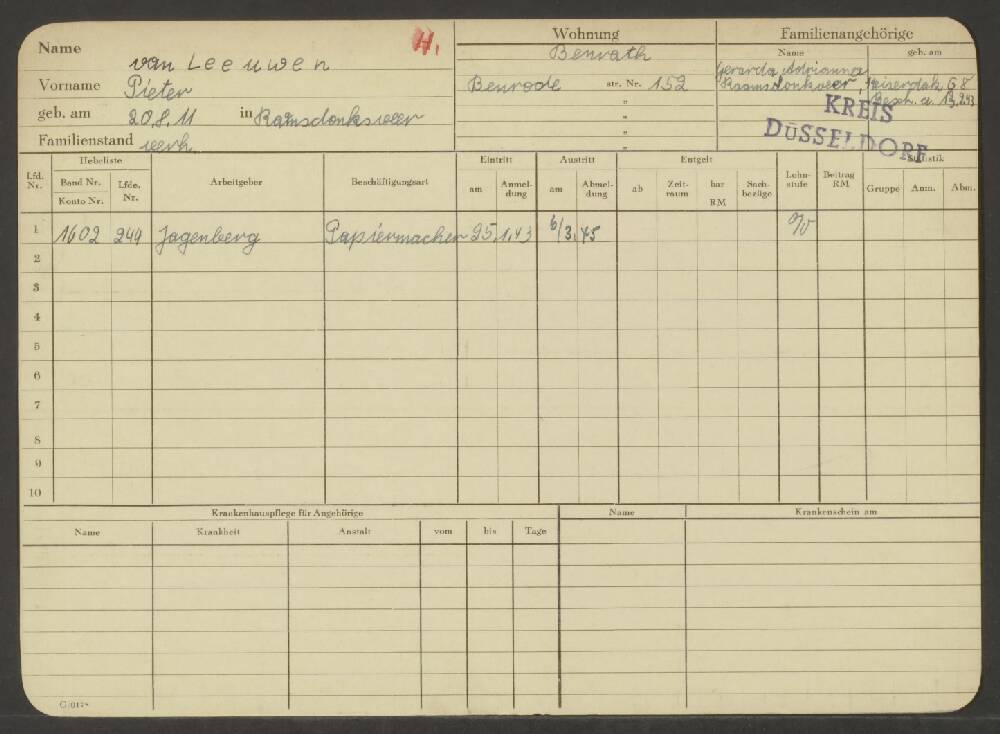 Name van Leeuwen H.
Vorname Pieter
geb. am 20.8.11 in Raamsdonksveer
Familienstand verh.
Wohnung
Benrath
Benrode str. Nr. 152
"
"
"
"
Familienangehörige
Name geb. am
Gerarda Adrianna
Raamsdonksveer, Keizersdijk 68
Besch. a. 13.2.43
KREIS
DÜSSELDORF
Lfd. Nr. Hebeliste Arbeitgeber Beschäftigungsart Eintritt Austritt Entgelt Lohn-stufe Beitrag RM Statistik
Band Nr. Konto Nr. Lfde. Nr. am Anmel-dung am Abmel-dung ab Zeit-raum bar RM Sach-bezüge Gruppe Anm. Abm.
1 1602 249 Jagenberg Papiermacher 25.1.43 6/3.45
2
3
4
5
6
7
8
9
10
Krankenhauspflege für Angehörige
Name Krankheit Anstalt vom bis Tage
Name Krankenschein am